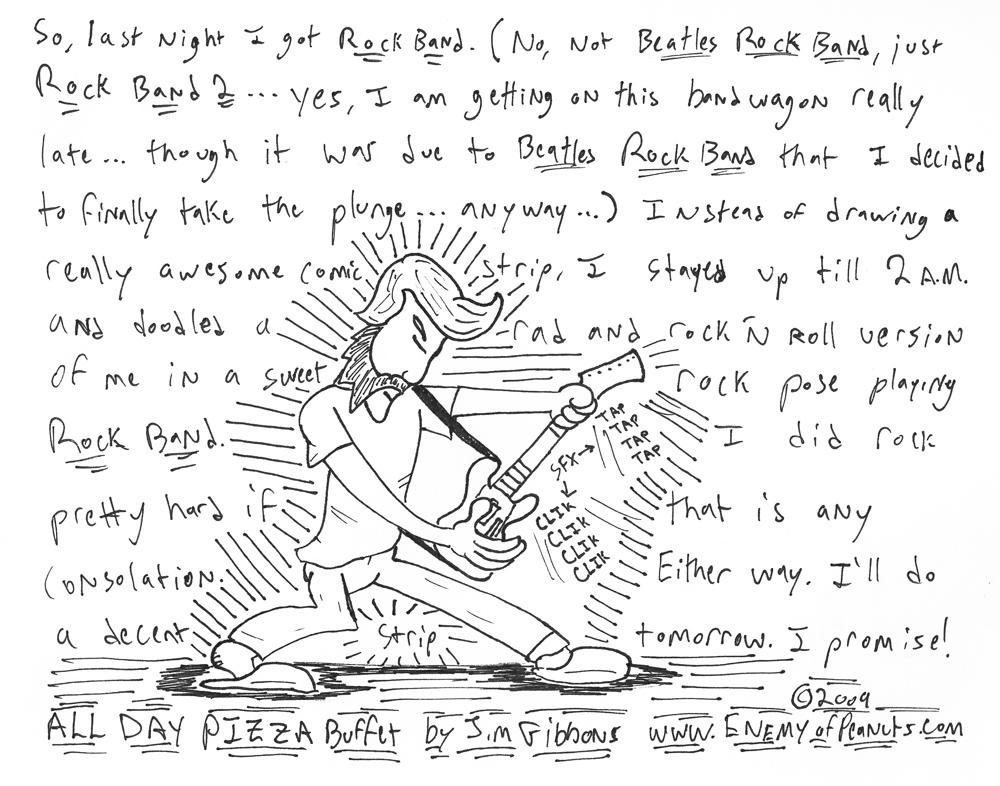 So, last night I got Rock Band. (No, not Beatles Rock Band, just
Rock Band 2... yes, I am getting on this bandwagon really
late... though it was due to Beatles Rock Band that I decided
to finally take the plunge... anyway...) Instead of drawing a
really awesome comic strip, I stayed up till 2 A.M.
and doodled a rad and rock 'n roll version
of me in a sweet rock pose playing
Rock Band. I did rock
pretty hard if that is any
consolation. Either way. I'll do
a decent strip tomorrow. I promise!
TAP
TAP
TAP
TAP
SFX→
CLIK
CLIK
CLIK
CLIK
©2009
ALL DAY PIZZA Buffet by Jim Gibbons www.ENEMYofPeanuts.com